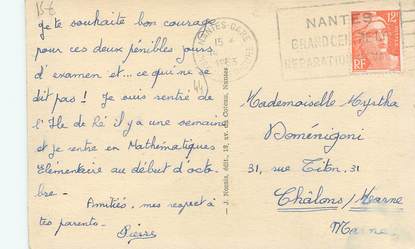 15€
je te souhaite bon courage
pour ces deux pénibles jours
d'examen et... ce qui ne se
dit pas! Je suis rentré de
(44)
l'Ile de Ré il y a une semaine
et je rentre en Mathématiques
Elémentaire au début d'octo-
bre.
Amitiés, mes respect à
tes parents.
Pierre
J. Nozais, édit., 12, av. du Coteau, Nantes
NANTES-GARE
15 -
NANTES
GRAND CENTRE
REPARATION
12F
RF
Mademoiselle Myrtha
Doménigoni
31, rue Titon, 31
Châlons/Marne
Marne